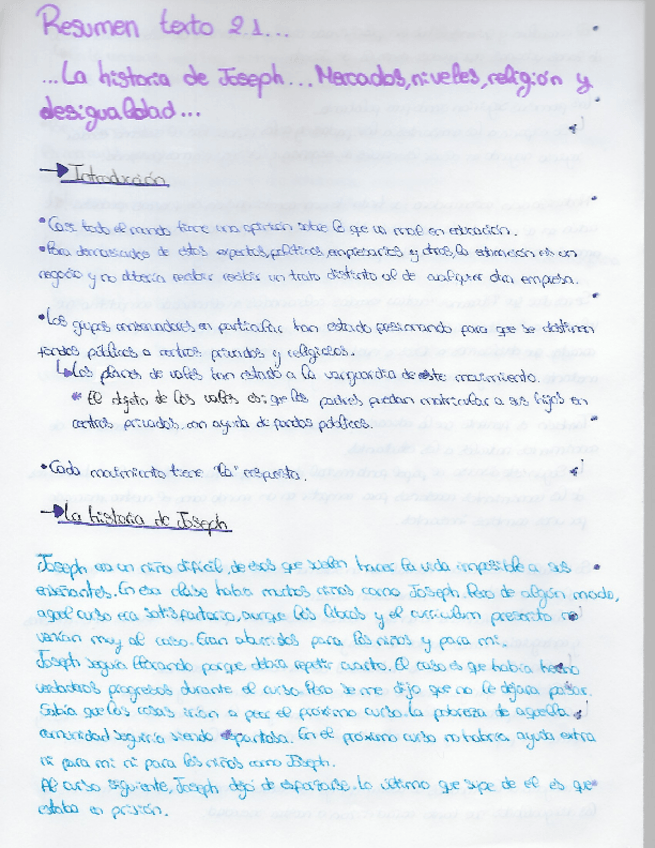 Resumen texto 2.1...
...La historia de Joseph... Mercados, niveles, religión y
desigualdad...
→ Introducción
• Casi todo el mundo tiene una opinión sobre lo que va mal en educación.
• Para demasiados de estos expertos, políticos, empresarios y otros, la educación es un
negocio y no debería recibir un trato distinto al de cualquier otra empresa.
• Los grupos conservadores en particular, han estado presionando para que se destinen
fondos públicos a centros privados y religiosos.
Los planes de vales han estado a la vanguardia de este movimiento.
* El objeto de los vales es que los padres puedan matricular a sus hijos en
centros privados, con ayuda de fondos públicos.
• Cada movimiento tiene "la" respuesta.
→ La historia de Joseph
Joseph era un niño difícil, de esos que suelen hacer la vida imposible a sus
enseñantes. En esa clase había muchos niños como Joseph. Pero de algún modo,
aquel curso era satisfactorio, aunque los libros y el currículum prescrito no
venían muy al caso. Eran aburridos para los niños y para mi.
Joseph seguía llorando porque debía repetir cuarto. El caso es que había hecho
verdaderos progresos durante el curso. Pero se me dijo que no le dejara pasar.
Sabía que las cosas irían a peor el próximo curso. la pobreza de aquella
comunidad seguiría siendo espantosa. En el próximo curso no habría ayuda extra
ni para mi ni para los niños como Joseph.
Al curso siguiente, Joseph dejó de esforzarse. Lo último que supe de él es que
estaba en prisión.